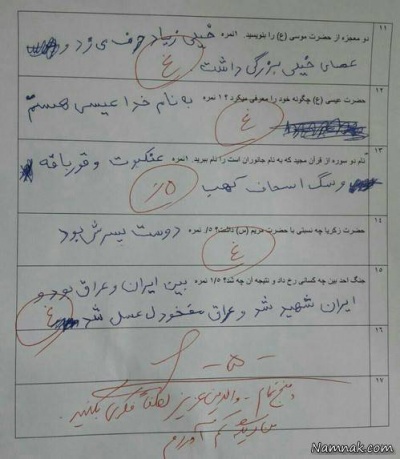 ۱۱
دو معجزه از حضرت موسی (ع) را بنویسید. ۱نمره خیلی زیاد حرف می زد و
عصای خیلی بزرگی داشت. غ
۱۲
حضرت عیسی (ع) چگونه خود را معرفی میکرد؟ ۱ نمره به نام خدا عیسی هستم
غ
۱۳
نام دو سوره از قرآن مجید که به نام جانوران است را نام ببرید. ۱نمره عنکبوت و قورباقه
و سگ اسحاف کهب ۵/.
۱۴
حضرت زکریا چه نسبتی با حضرت مریم (س) داشت؟ ۵/. نمره دوست پسرش بود
غ
۱۵
جنگ احد بین چه کسانی رخ داد و نتیجه آن چه شد؟ ۱/۵ نمره بین ایران و عراق بود و
ایران شهید شد و عراق مفخودل عسل شد غ
۱۶
-۵-
۱۷
پنج تمام - والدین عزیز لطفاً فکری بکنید.
من که دیگه کم آوردم
Namnak.com